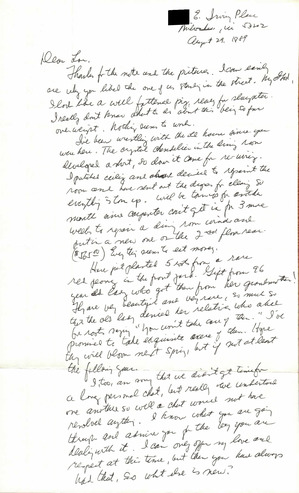 E. Irving Place
Milwaukee, Wi 53202
August 29, 1989
Dear Lou.
Thanks for the note and the pictures. I can easily
see why you liked the one of us standing in the street. My God.
I look like a well fattened pig ready for slaughter.
I really don't know what to do about this being so far
overweight. Nothing seems to work.
I've been wrestling with the old house since you
were here. The crystal chandelier in the living room
developed a short, so down it came for re-wiring.
I patched ceiling and decided to repaint the
room and have sent out the drapes for cleaning so
everything is torn up. Will be torn up for another
month since carpenter can't get in for 3 more
weeks to repair a living room window and
put in a new one on the 2nd floor rear.
Everything seems to eat money.
Have just planted 5 roots from a rare
red peony in the front yard. Gift from 96
year old lady who got them from her grandmother!
They are very beautiful and very rare, so much so
that the old lady denied her relatives who asked
for roots saying "You won't take care of them." I've
promised to take exquisite care of them. Hope
they will bloom next Spring, but if not at least
the following year.
I too, am sorry that we didn't get time for
a long, personal chat, but really we understand
one another so well a chat would not have
resolved anything. I know what you are going
through and admire you for the way you are
dealing with it. I can only offer my love and
respect at this time, but then you have always
had that, so what else is new?